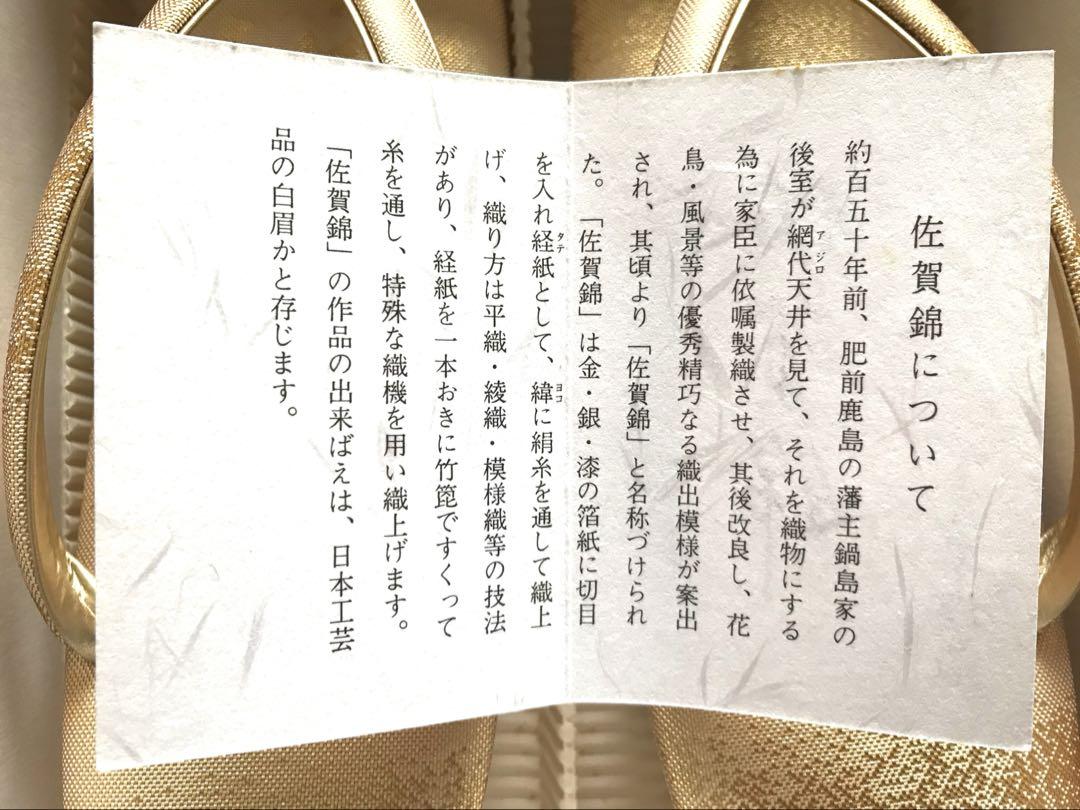 佐賀錦について
約百五十年前、肥前鹿島の藩主鍋島家の
後室が網代天井を見て、それを織物にする
アジロ
為に家臣に依嘱製織させ、其後改良し、花
鳥・風景等の優秀精巧なる織出模様が案出
され、其頃より「佐賀錦」と名称づけられ
た。「佐賀錦」は金・銀・漆の箔紙に切目
を入れ経紙として、緯に絹糸を通して織上
タテ
ヨコ
げ、織り方は平織・綾織・模様織等の技法
があり、経紙を一本おきに竹箆ですくって
糸を通し、特殊な織機を用い織上げます。
「佐賀錦」の作品の出来ばえは、日本工芸
品の白眉かと存じます。